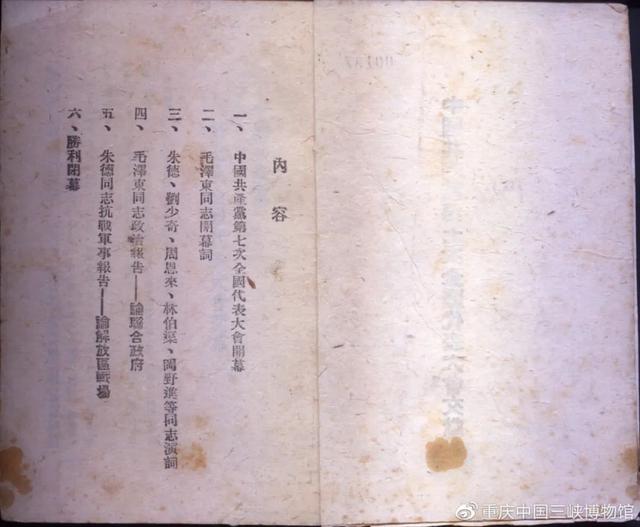 內容
一、中國共產黨第七次全國代表大會開幕
二、毛澤東同志開幕詞
三、朱德、劉少奇、周恩來、林伯渠、岡野進等同志演詞
四、毛澤東同志政治報告——論聯合政府
五、朱德同志抗戰軍事報告——論解放區戰場
六、勝利閉幕
重庆中国三峡博物馆